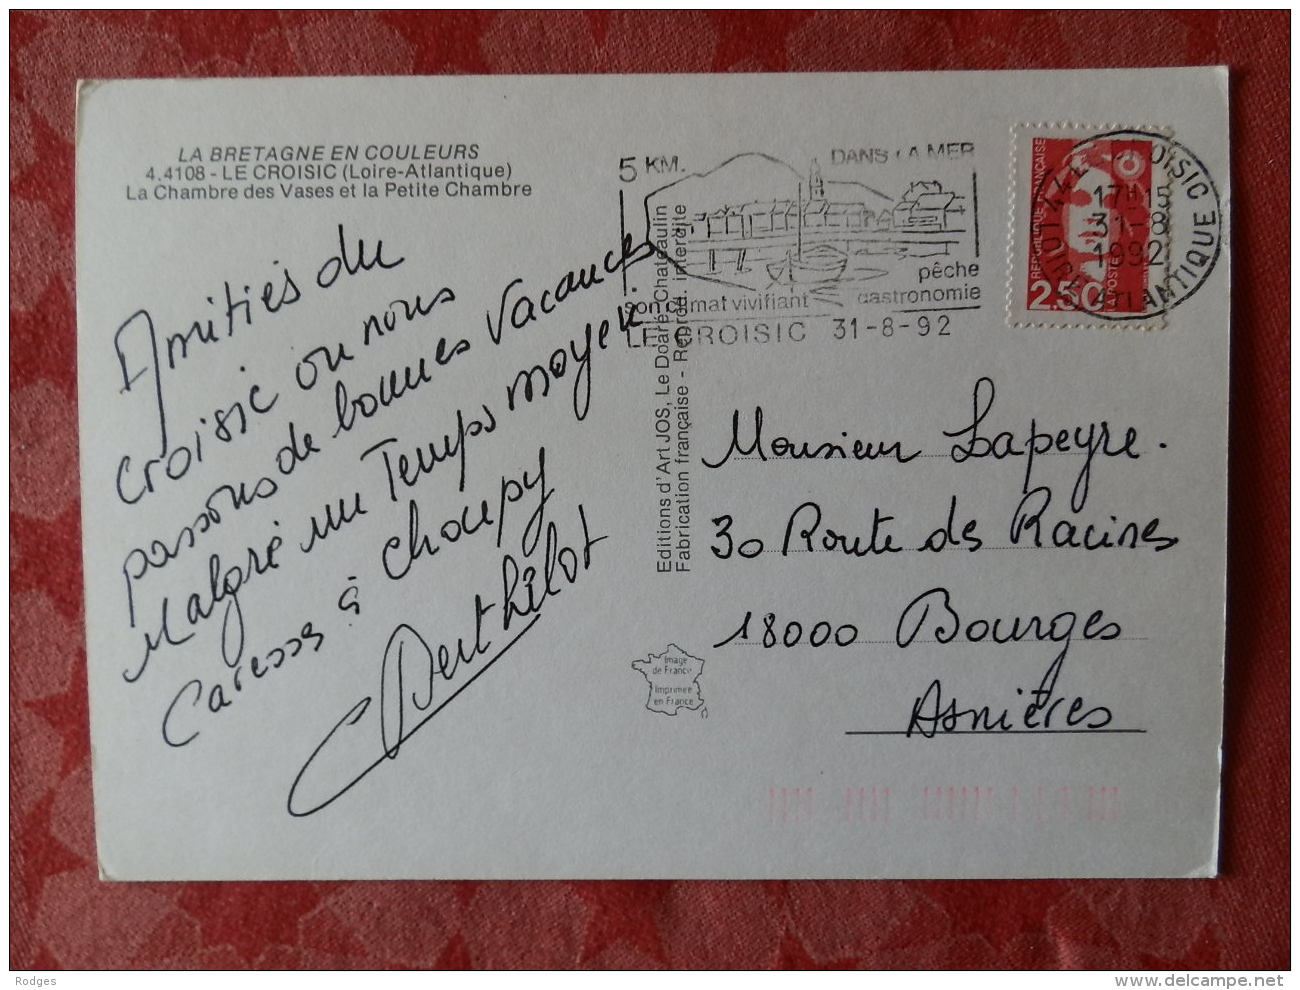 LA BRETAGNE EN COULEURS
4.4108 - LE CROISIC (Loire-Atlantique)
La Chambre des Vases et la Petite Chambre
Amitiés du
Croisic ou nous
passons de bonnes vacances
Malgré un Temps moyen.
Caresse à choupy
Berthelot
Editions d'Art JOS, Le Doaré, Chateaulin
Fabrication française - Reprod. interdite
Image
de France
Imprimée
en France
5 KM.
DANS LA MER
pêche
son climat vivifiant
gastronomie
LE CROISIC 31-8-92
REPUBLIQUE FRANÇAISE
2,50
LA POSTE
17H15
31-8
1992
ATLANTIQUE
Monsieur Lapeyre.
30 Route des Racines
18000 Bourges
Asnières
Rodges
www.delcampe.net